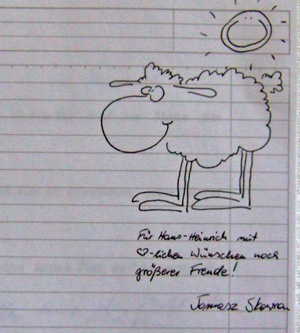 Für Hans-Heinrich mit
♡-lichen Wünschen noch
größerer Freude!
Tomasz Skowron